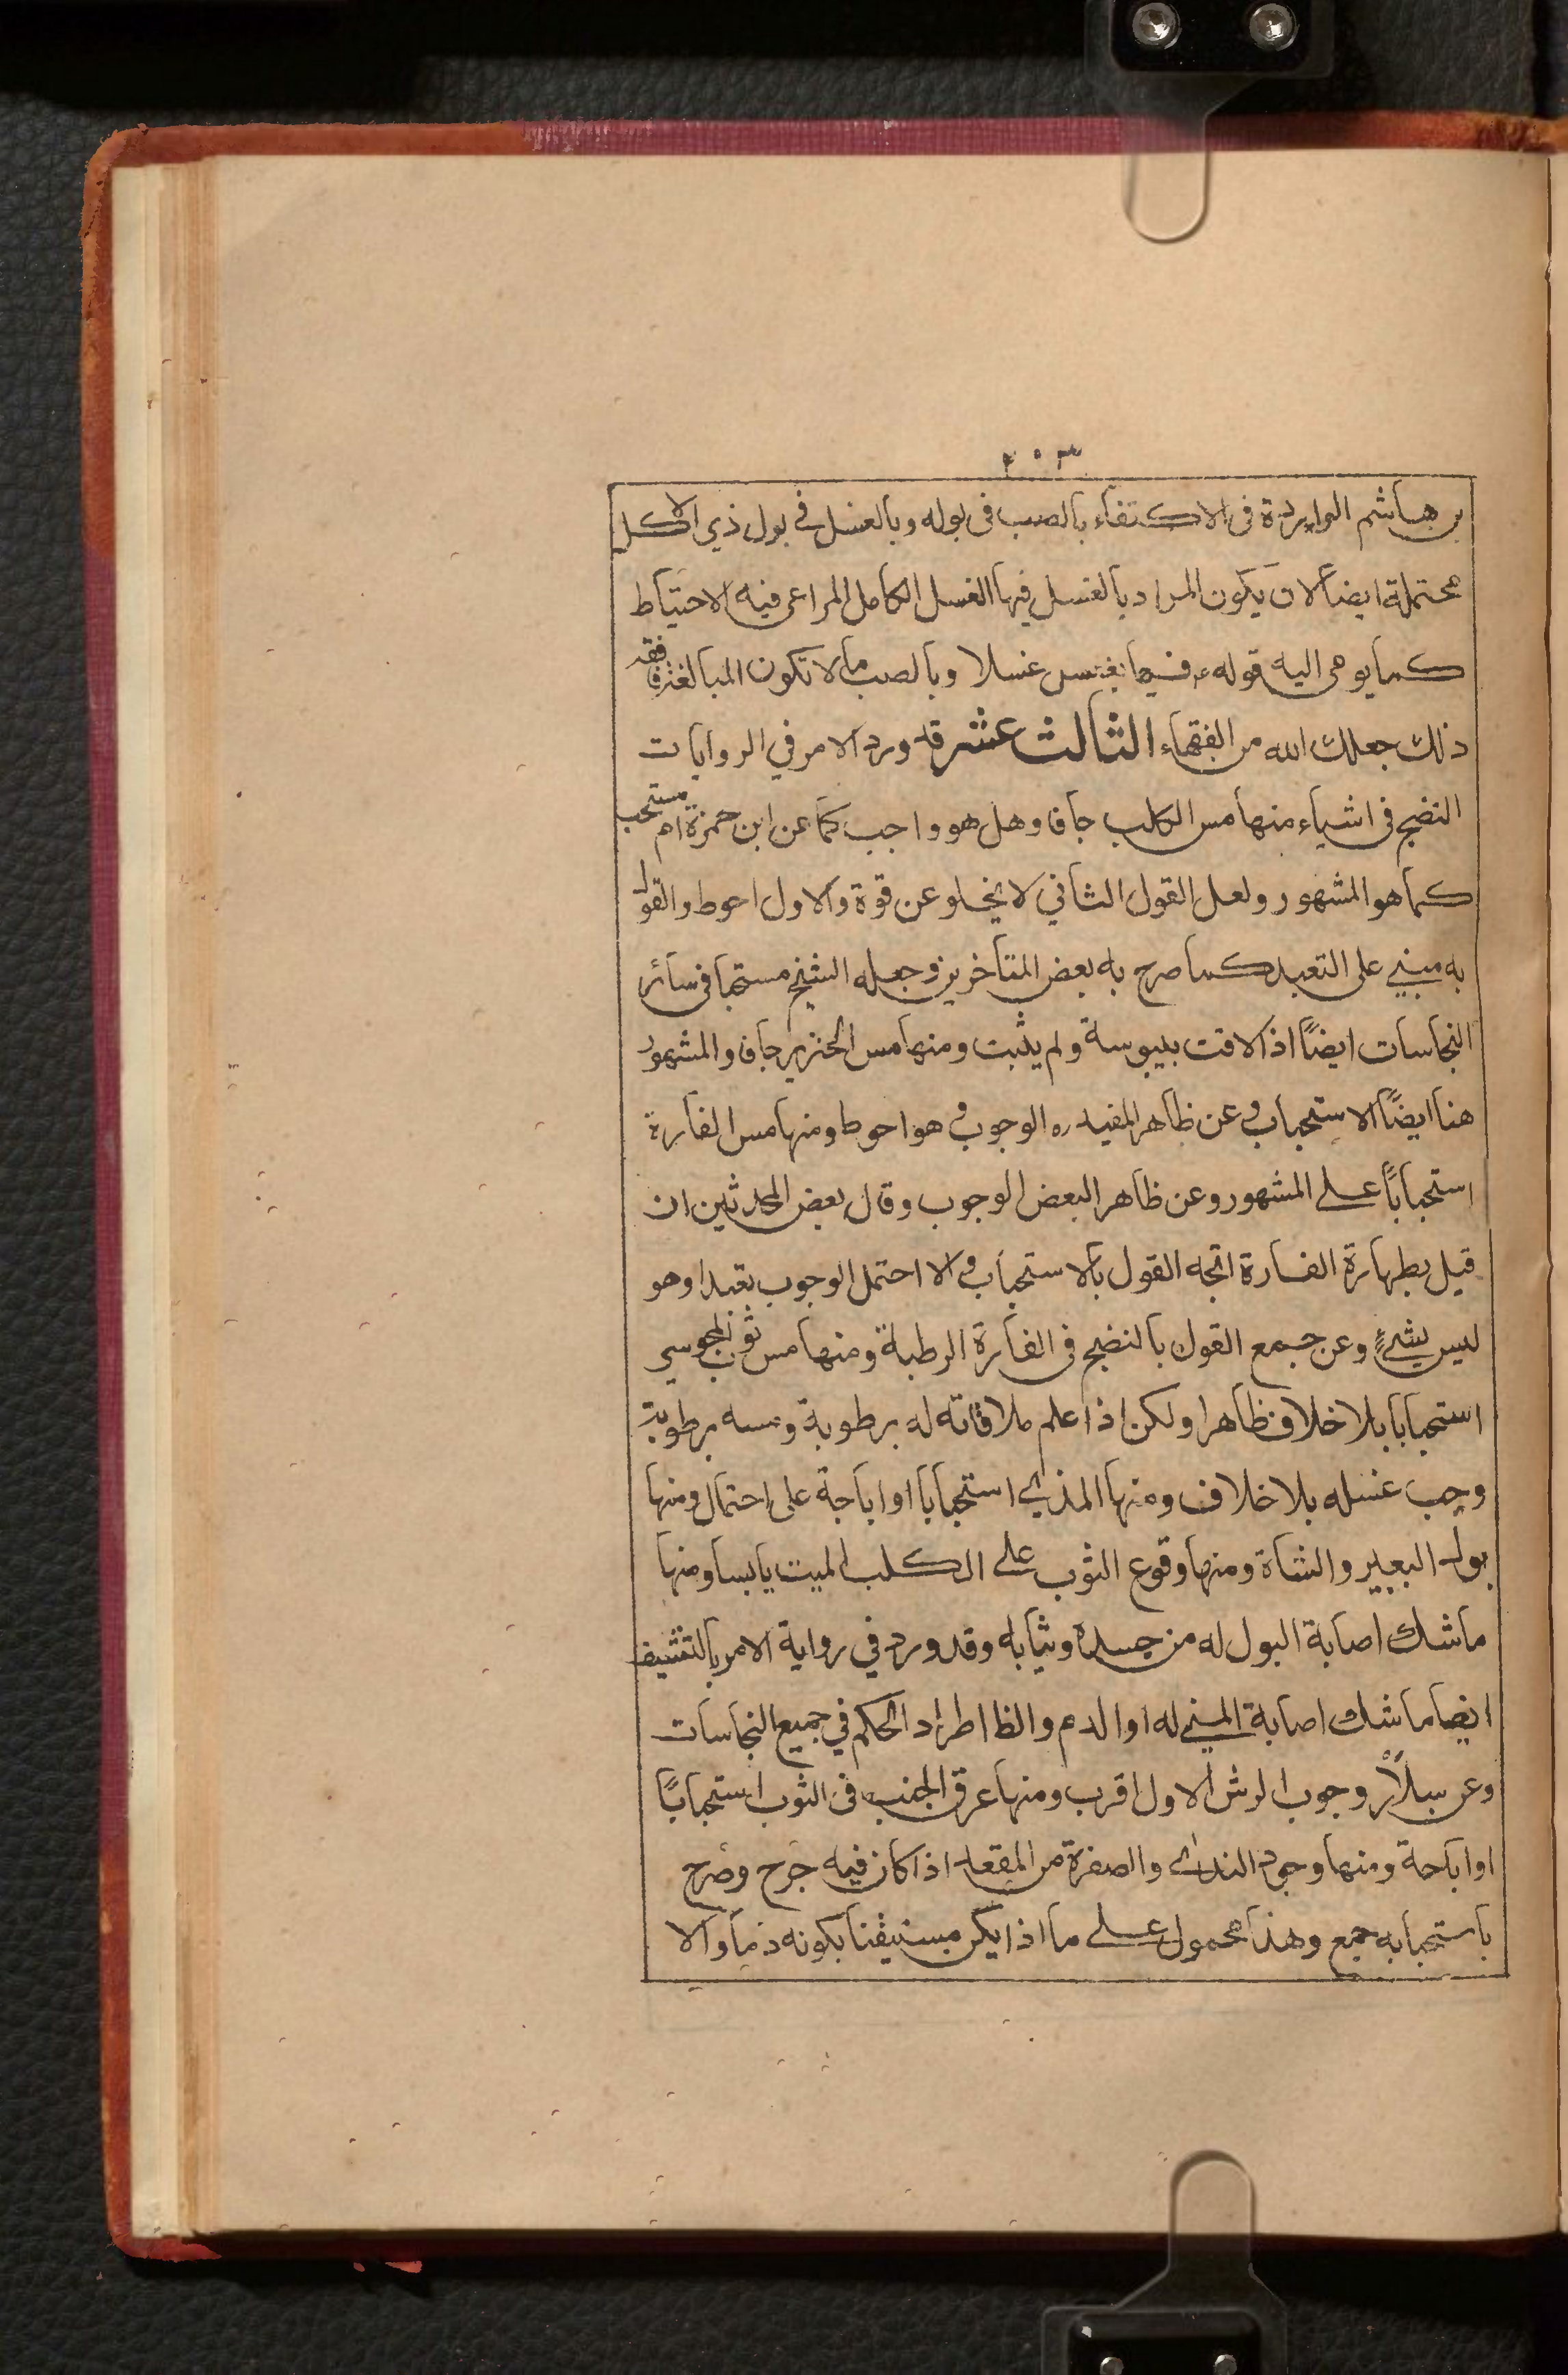 ٢٠٣
بن هاشم الواردة فى الاكتفاء بالصب فى بوله وبالغسل في بول ذي الاكل
محتملة ايضاً لان يكون المراد بالغسل فيها الغسل الكامل المراعى فيه الاحتياط
كما يوحى اليه قوله ع فيها يغتسل غسلا وبالصب ما لا تكون المبالغة فافقه
ذلك جعلك الله من الفقهاء الثالث عشر قد ورد الامر في الروايات
النضح فى اشياء منها مس الكلب جافا وهل هو واجب كما عن ابن حمزة ام مستحب
كما هو المشهور ولعل القول الثاني لا يخلو عن قوة والاول احوط والقول
به مبني على التعبد كما صرح به بعض المتأخرين وجعله الشيخ مستحبا فى سائر
النجاسات ايضاً اذا لاقت بيبوسة ولم يثبت ومنها مس الخنزير جافا والمشهور
هنا ايضاً الاستحباب وعن ظاهر المفيد ره الوجوب وهو احوط ومنها مس الفارة
استحباباً على المشهور وعن ظاهر البعض الوجوب وقال بعض المحدثين ان
قيل بطهارة الفارة اتجه القول بالاستحباب والا احتمل الوجوب تعبدا وهو
ليس بشيءٍ وعن جمع القول بالنضح فى الفارة الرطبة ومنها مس ثوب المجوسي
استحبابا بلا خلاف ظاهرا ولكن اذا علم ملاقاته له برطوبة ومسه برطوبة
وجب غسله بلا خلاف ومنها المذي استحبابا او اباحة على احتمال ومنها
بول البعير والشاة ومنها وقوع الثوب على الكلب الميت يابسا ومنها
ما شك اصابة البول له من جسده وثيابه وقد ورد في رواية الامر بالتنشيف
ايضا ما شك اصابة المني له او الدم والظا اطراد الحكم في جميع النجاسات
وعن سلاّر وجوب الرش الاول اقرب ومنها عرق الجنب فى الثوب استحباباً
او اباحة ومنها وجود الندى والصفرة من المقعد اذا كان فيه جرح وصرح
باستحبابه جمع وهذا محمول على ما اذا يكن مستيقنا بكونه دما والا